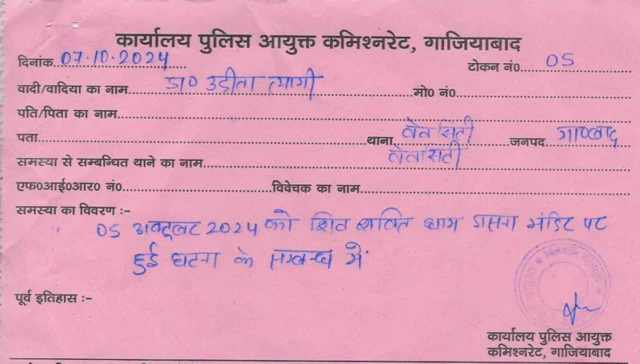 कार्यालय पुलिस आयुक्त कमिश्नरेट, गाजियाबाद
दिनांक 07.10.2024 टोकन नं० 05
वादी/वादिया का नाम डा० उदीता त्यागी मो० नं०
पति/पिता का नाम
पता थाना वेव सिटी जनपद गा०बाद
समस्या से सम्बन्धित थाने का नाम वेव सिटी
एफ०आई०आर० नं० विवेचक का नाम
समस्या का विवरण :-
05 अक्टूबर 2024 को शिव शक्ति धाम डासना मंदिर पर
हुई घटना के सम्बन्ध में
पूर्व इतिहास :-
कार्यालय पुलिस आयुक्त
कमिश्नरेट, गाजियाबाद